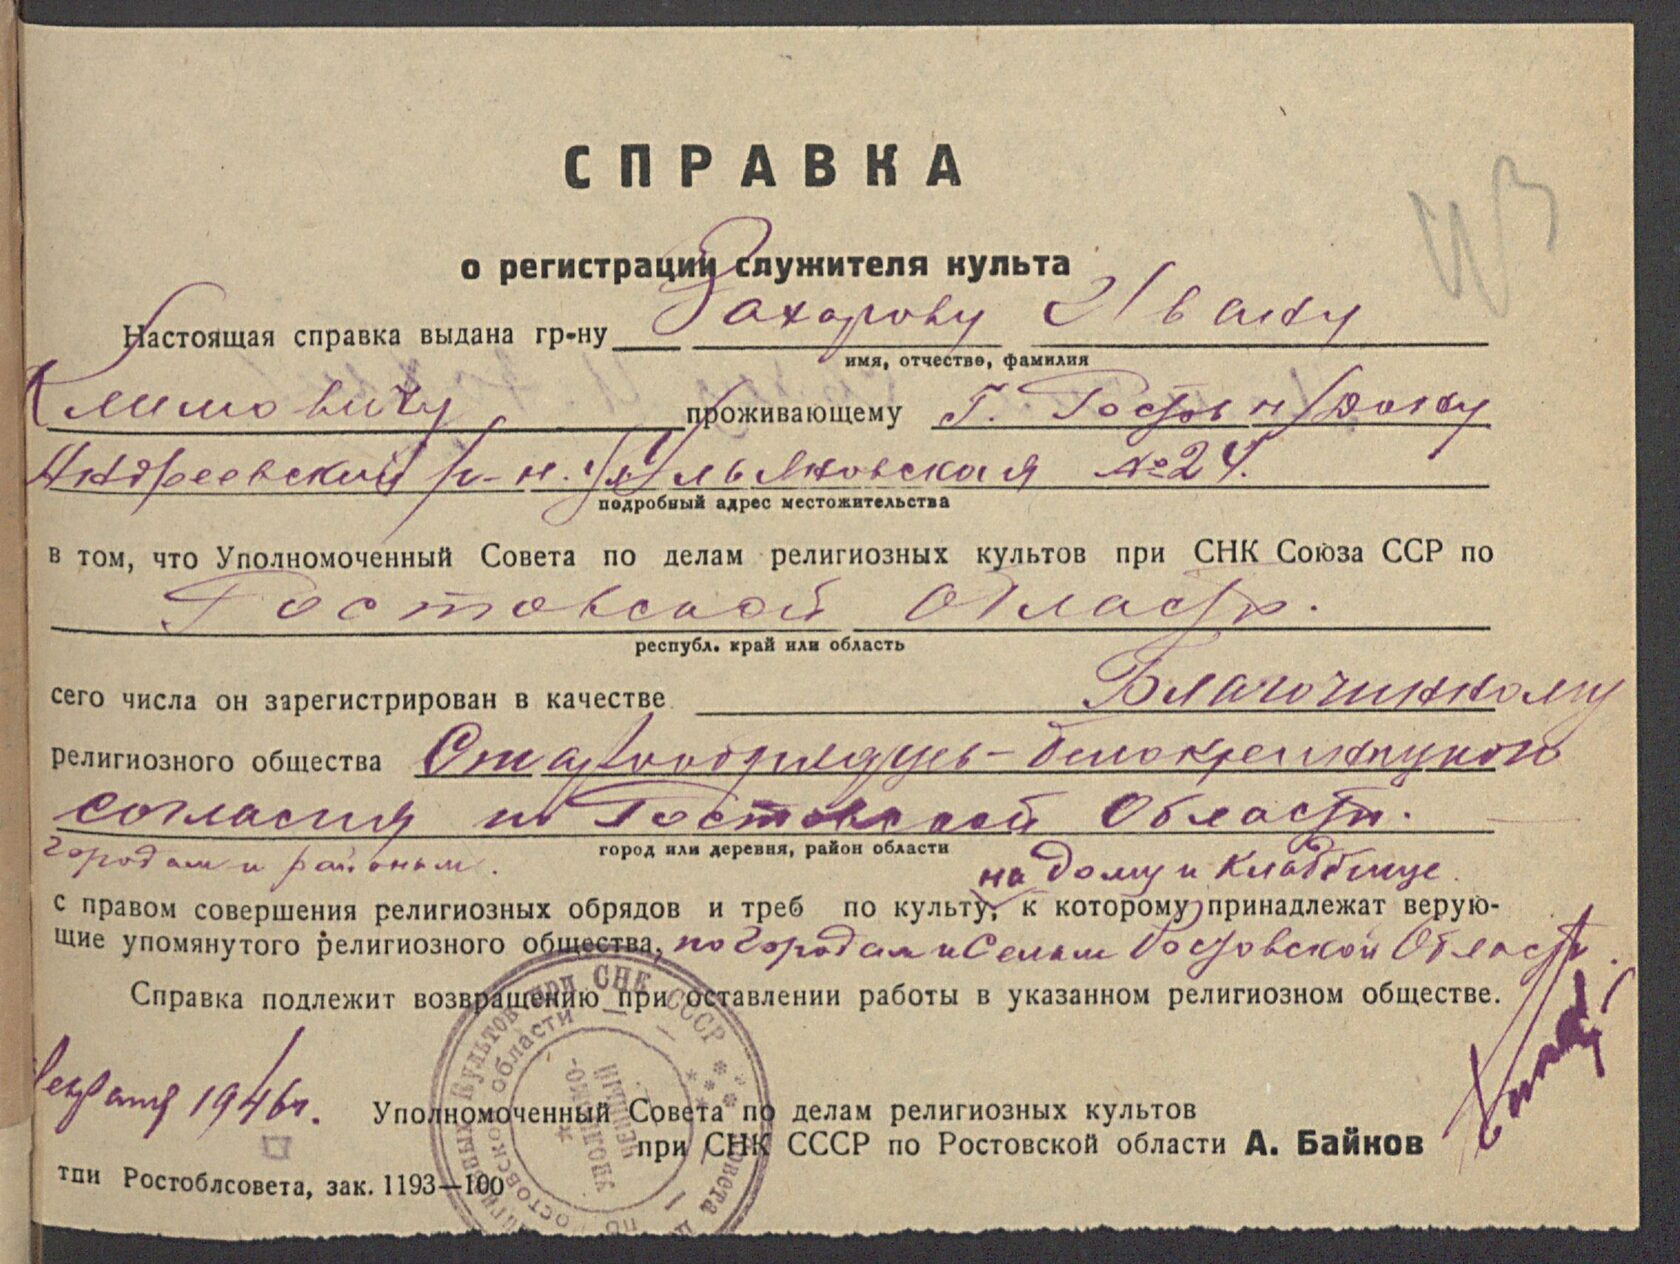 СПРАВКА
о регистрации служителя культа
Настоящая справка выдана гр-ну Захарову Ивану
имя, отчество, фамилия
Климовичу проживающему Г. Ростов н/Дону
Андреевский р-н. Ульяновская №24.
подробный адрес местожительства
в том, что Уполномоченный Совета по делам религиозных культов при СНК Союза ССР по
Ростовской Области.
республ. край или область
сего числа он зарегистрирован в качестве Благочинному
религиозного общества Старообрядцев-белокриницкой
согласия по Ростовской Области.
город или деревня, район области
городам и районам.
на дому и кладбище.
с правом совершения религиозных обрядов и треб по культу, к которому принадлежат верую-
щие упомянутого религиозного общества, по городам и Селам Ростовской Области.
Справка подлежит возвращению при оставлении работы в указанном религиозном обществе.
1946г.
Уполномоченный Совета по делам религиозных культов
при СНК СССР по Ростовской области А. Байков
тпи Ростоблсовета, зак. 1193—100